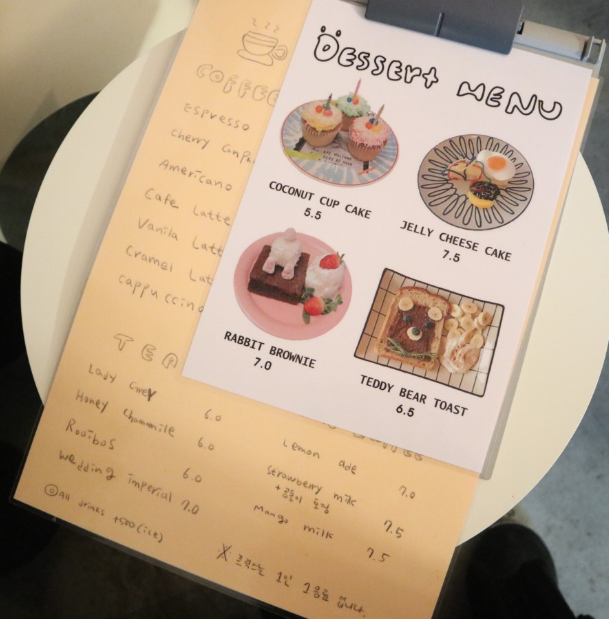 DESSERT MENU
COCONUT CUP CAKE
5.5
JELLY CHEESE CAKE
7.5
RABBIT BROWNIE
7.0
TEDDY BEAR TOAST
6.5
COFFEE
Espresso
Cherry
Americano
Cafe Latte
Vanila Latt
Cramel Lat
cappuccino
TEA
Lady Grey
6.0
Honey Chamomile
6.0
Rooibos
6.0
wedding imperial
7.0
Lemon ade
7.0
Strawberry milk
7.5
Mango milk
7.5
◎All drinks +500 (ice)
1인 1음료 입니다.